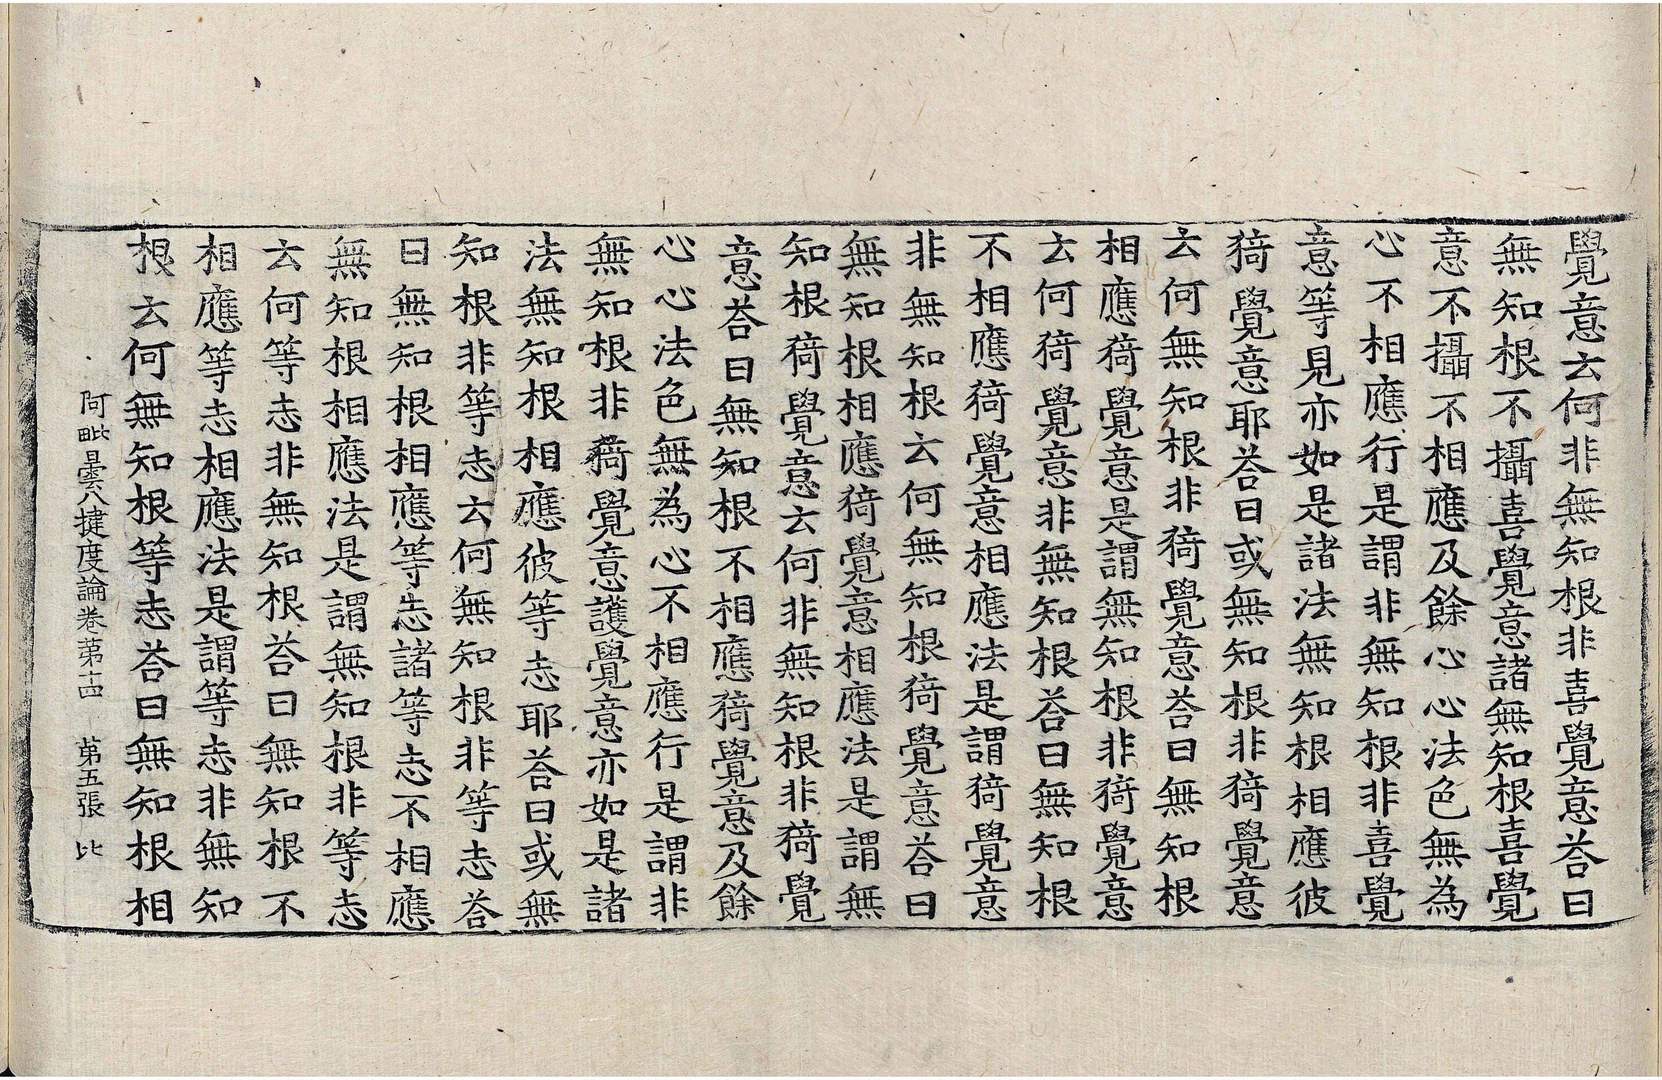 覺意云何非無知根非喜覺意荅曰
無知根不攝喜覺意諸無知根喜覺
意不攝不相應及餘心心法色無為
心不相應行是謂非無知根非喜覺
意等見亦如是諸法無知根相應彼
猗覺意耶荅曰或無知根非猗覺意
云何無知根非猗覺意荅曰無知根
相應猗覺意是謂無知根非猗覺意
云何猗覺意非無知根荅曰無知根
不相應猗覺意相應法是謂猗覺意
非無知根云何無知根猗覺意荅曰
無知根相應猗覺意相應法是謂無
知根猗覺意云何非無知根非猗覺
意荅曰無知根不相應猗覺意及餘
心心法色無為心不相應行是謂非
無知根非猗覺意護覺意亦如是諸
法無知根相應彼等志耶荅曰或無
知根非等志云何無知根非等志荅
曰無知根相應等志諸等志不相應
無知根相應法是謂無知根非等志
云何等志非無知根荅曰無知根不
相應等志相應法是謂等志非無知
根云何無知根等志荅曰無知根相
阿毗曇八揵度論卷第十四 第五張 比